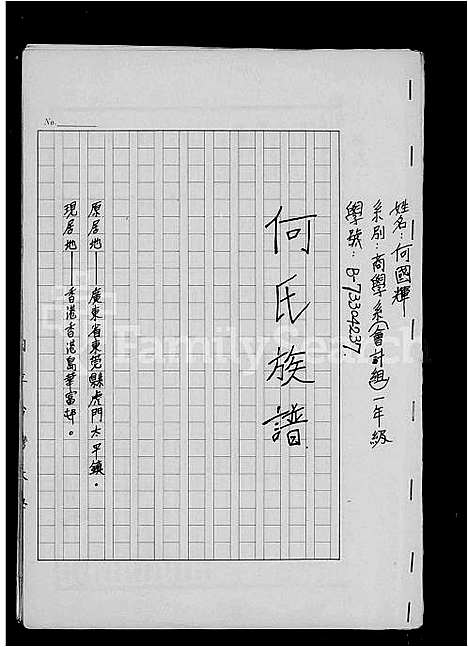 姓名：何國輝
系別：商學系(會計組)一年級
學號：B-7334237.
何氏族譜
原居地——廣東省東莞縣虎門太平鎮。
現居地——香港香港島華富邨。
No.
FamilySearch